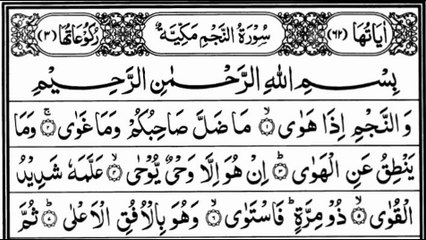 اٰيَاتُهَا (٦٢) سُوْرَةُ النَّجْمِ مَكِّيَّةٌ رُكُوْعَاتُهَا (٣)
بِسْمِ اللّٰهِ الرَّحْمٰنِ الرَّحِيْمِ
وَالنَّجْمِ اِذَا هَوٰى ۙ﴿۱﴾ مَا ضَلَّ صَاحِبُكُمْ وَمَا غَوٰى ۚ﴿۲﴾ وَمَا
يَنْطِقُ عَنِ الْهَوٰى ؕ﴿۳﴾ اِنْ هُوَ اِلَّا وَحْيٌ يُّوْحٰى ۙ﴿۴﴾ عَلَّمَهٗ شَدِيْدُ
الْقُوٰى ۙ﴿۵﴾ ذُوْ مِرَّةٍ ؕ فَاسْتَوٰى ۙ﴿۶﴾ وَهُوَ بِالْاُفُقِ الْاَعْلٰى ؕ﴿۷﴾ ثُمَّ